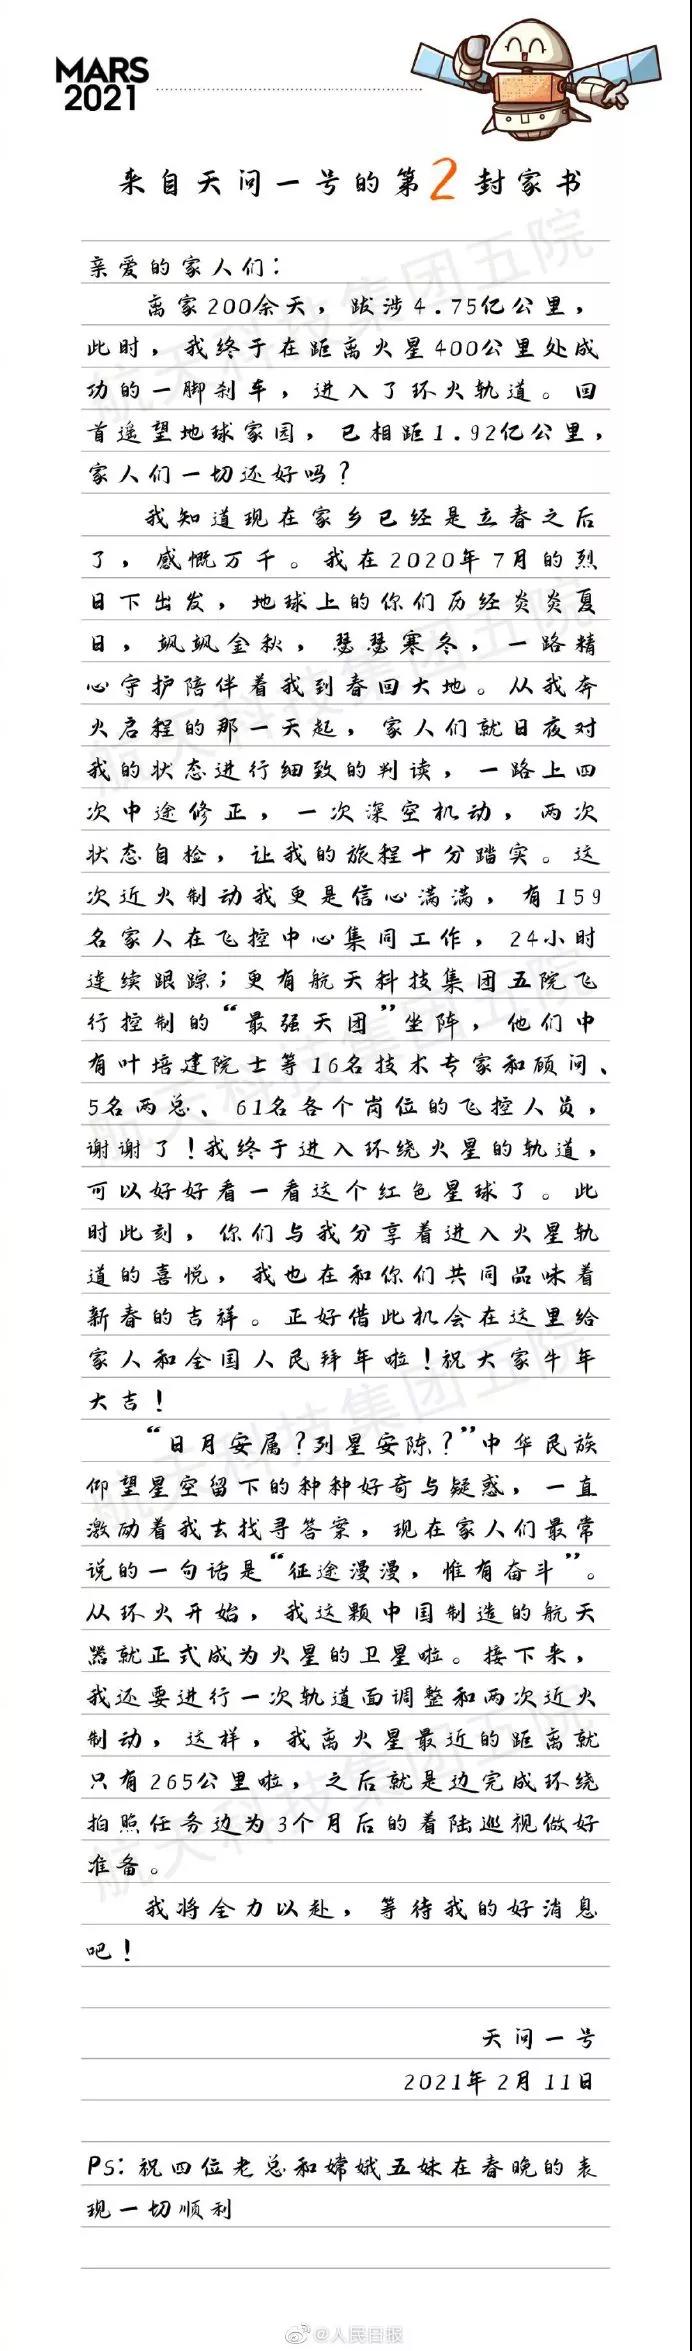 MARS
2021
来自天问一号的第2封家书
亲爱的家人们：
离家200余天，跋涉4.75亿公里，
此时，我终于在距离火星400公里处成
功的一脚刹车，进入了环火轨道。回
首遥望地球家园，已相距1.92亿公里，
家人们一切还好吗？
我知道现在家乡已经是立春之后
了，感慨万千。我在2020年7月的烈
日下出发，地球上的你们历经炎炎夏
日，飒飒金秋，瑟瑟寒冬，一路精
心守护陪伴着我到春回大地。从我奔
火启程的那一天起，家人们就日夜对
我的状态进行细致的判读，一路上四
次中途修正，一次深空机动，两次
状态自检，让我的旅程十分踏实。这
次近火制动我更是信心满满，有159
名家人在飞控中心集同工作，24小时
连续跟踪；更有航天科技集团五院飞
行控制的“最强天团”坐阵，他们中
有叶培建院士等16名技术专家和顾问、
5名两总、61名各个岗位的飞控人员，
谢谢了！我终于进入环绕火星的轨道，
可以好好看一看这个红色星球了。此
时此刻，你们与我分享着进入火星轨
道的喜悦，我也在和你们共同品味着
新春的吉祥。正好借此机会在这里给
家人和全国人民拜年啦！祝大家牛年
大吉！
“日月安属？列星安陈？”中华民族
仰望星空留下的种种好奇与疑惑，一直
激励着我去找寻答案，现在家人们最常
说的一句话是“征途漫漫，惟有奋斗”。
从环火开始，我这颗中国制造的航天
器就正式成为火星的卫星啦。接下来，
我还要进行一次轨道面调整和两次近火
制动，这样，我离火星最近的距离就
只有265公里啦，之后就是边完成环绕
拍照任务边为3个月后的着陆巡视做好
准备。
我将全力以赴，等待我的好消息
吧！
天问一号
2021年2月11日
PS：祝四位老总和嫦娥五妹在春晚的表
现一切顺利
航天科技集团五院
航天科技集团五院
航天科技集团五院
航天科技集团五院
航天科技集团五院
@人民日报